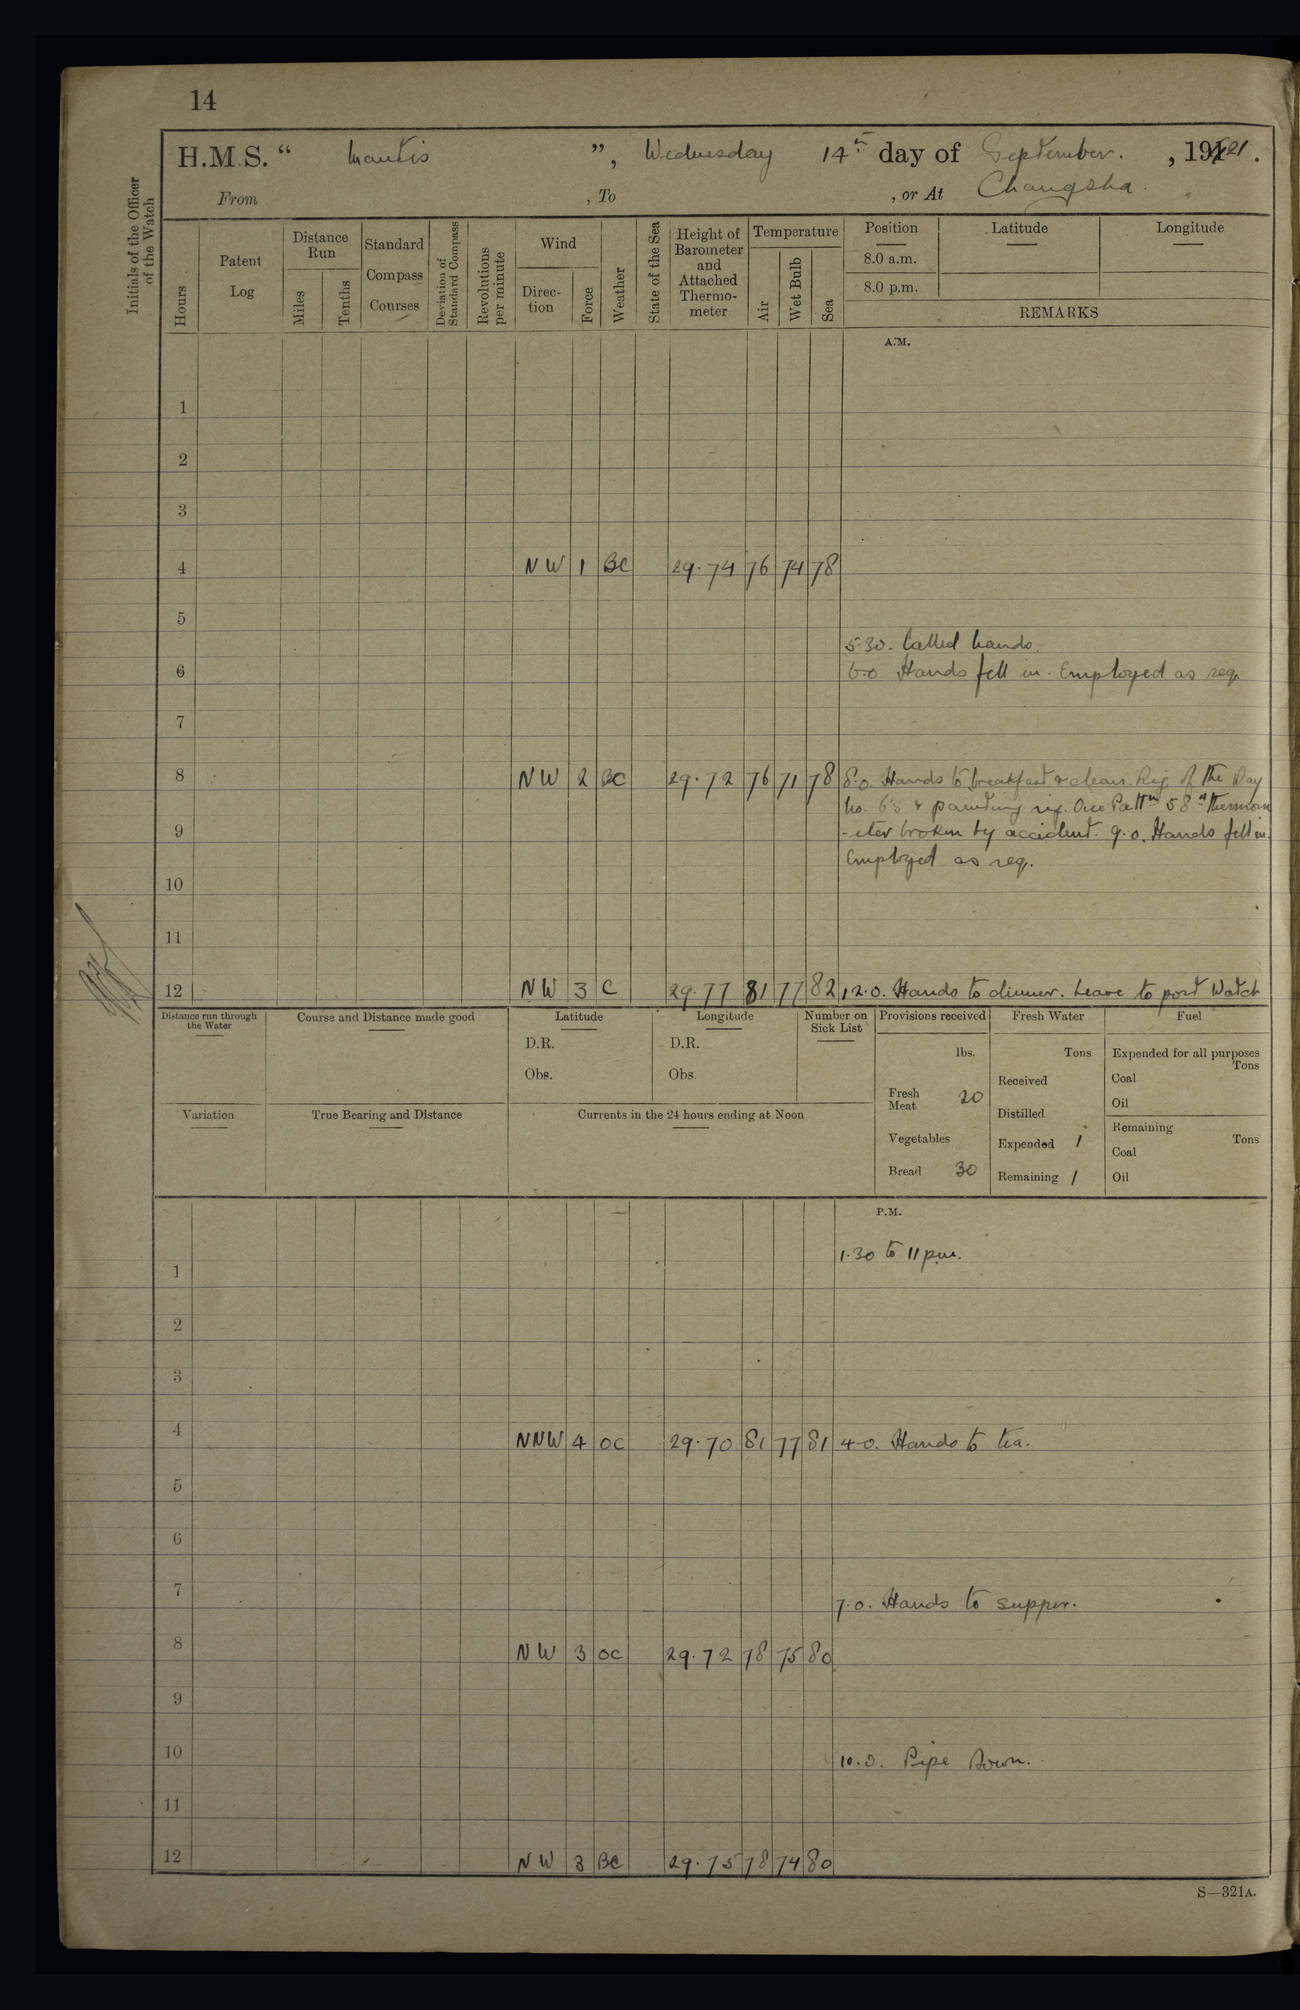 14
H.M.S. “ Mantis ”, Wednesday 14th day of September. , 1921.
From , To , or At Changsha.
Initials of the Officer of the Watch
Hours
Patent Log
Distance Run
Miles
Tenths
Standard Compass Courses
Deviation of Standard Compass
Revolutions per minute
Wind
Direction
Force
Weather
State of the Sea
Height of Barometer and Attached Thermo-meter
Temperature
Air
Wet Bulb
Sea
Position
8.0 a.m.
8.0 p.m.
Latitude
Longitude
REMARKS
A.M.
1
2
3
4 NW 1 BC 29.74 76 74 78
5
5.30. Called hands.
6 6.0 Hands fell in. Employed as req.
7
8 NW 2 BC 29.72 76 71 78 8.0. Hands to breakfast & clean. Rig of the Day
No. 6's & painting rig. One Pattn 58 "thermom
9 -eter broken by accident. 9.0. Hands fell in.
Employed as req.
10
11
12 NW 3 C 29.77 81 77 82 12.0. Hands to dinner. Leave to port Watch
Distance run through the Water
Course and Distance made good
Latitude
D.R.
Obs.
Longitude
D.R.
Obs.
Number on Sick List
Provisions received
lbs.
Fresh Meat 20
Vegetables
Bread 30
Fresh Water
Tons
Received
Distilled
Expended 1
Remaining 1
Fuel
Expended for all purposes
Tons
Coal
Oil
Remaining
Tons
Coal
Oil
Variation
True Bearing and Distance
Currents in the 24 hours ending at Noon
P.M.
1.30 to 11 pm.
1
2
3
4 NNW 4 OC 29.70 81 77 81 4.0. Hands to tea.
5
6
7 7.0. Hands to supper.
8 NW 3 OC 29.72 78 75 80
9
10 10.0. Pipe Down.
11
12 NW 3 BC 29.75 78 74 80
S—321A.